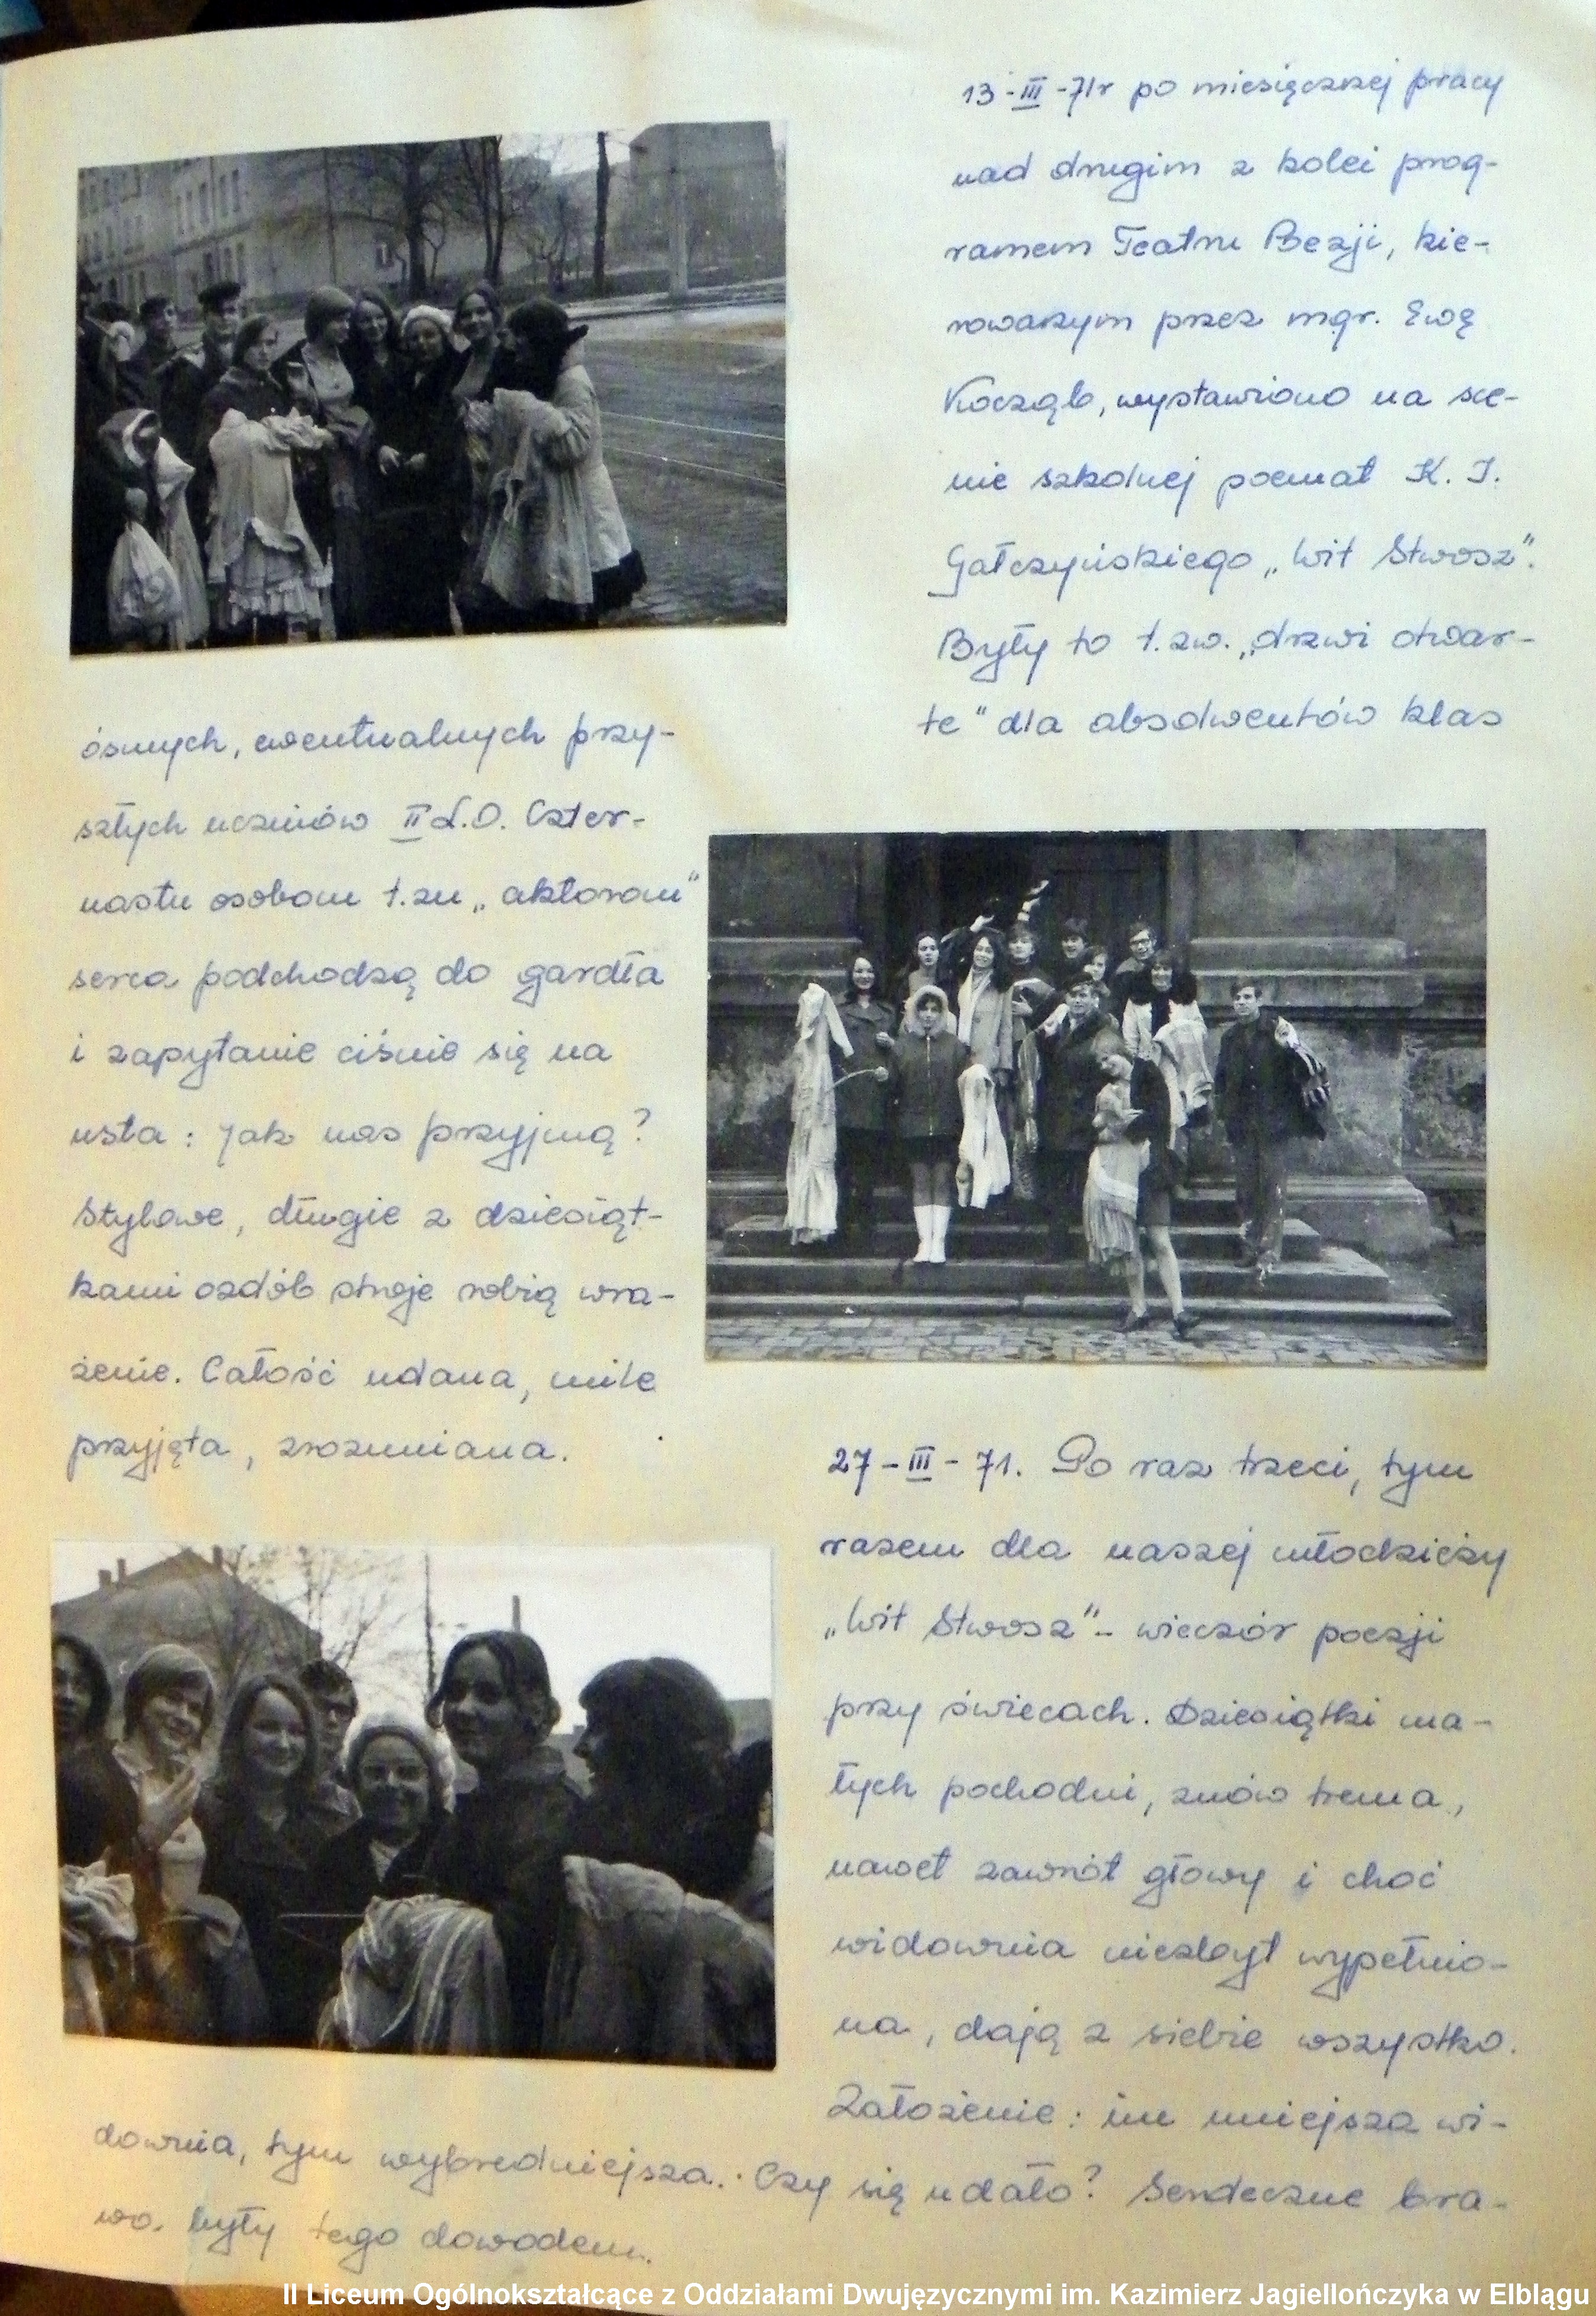 13-III-71r po miesięcznej pracy
nad drugim z kolei prog-
ramem Teatru Poezji, kie-
rowanym przez mgr. Ewę
Kocząb, wystawiono na sce-
nie szkolnej poemat K. I.
Gałczyńskiego „Wit Stwosz".
Były to t.zw. „drzwi otwar-
te" dla absolwentów klas
ósmych, ewentualnych przy-
szłych uczniów II L.O. Czter-
nastu osobom t.zw „aktorom"
serca podchodzą do gardła
i zapytanie ciśnie się na
usta: Jak nas przyjmą?
Stylowe, długie z dziesiąt-
kami ozdób stroje robią wra-
żenie. Całość udana, mile
przyjęta, zrozumiana.
27-III-71. Po raz trzeci, tym
razem dla naszej młodzieży
„Wit Stwosz" - wieczór poezji
przy świecach. Dziesiątki ma-
łych pochodni, znów trema,
nawet zawrót głowy i choć
widownia niezbyt wypełnio-
na, dają z siebie wszystko.
Założenie: im mniejsza wi-
downia, tym wybredniejsza. Czy się udało? Serdeczne bra-
wa były tego dowodem.
II Liceum Ogólnokształcące z Oddziałami Dwujęzycznymi im. Kazimierz Jagiellończyka w Elblągu